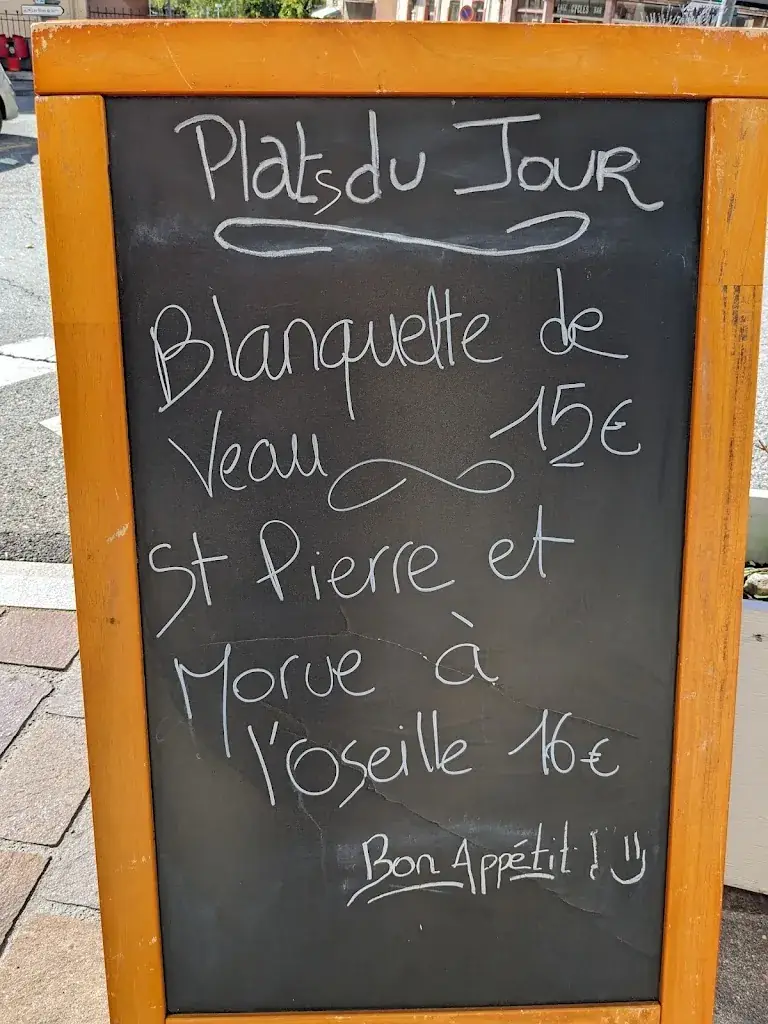 Plats du Jour
Blanquette de
Veau 15€
St Pierre et
Morue à
l'Oseille 16€
Bon Appétit !